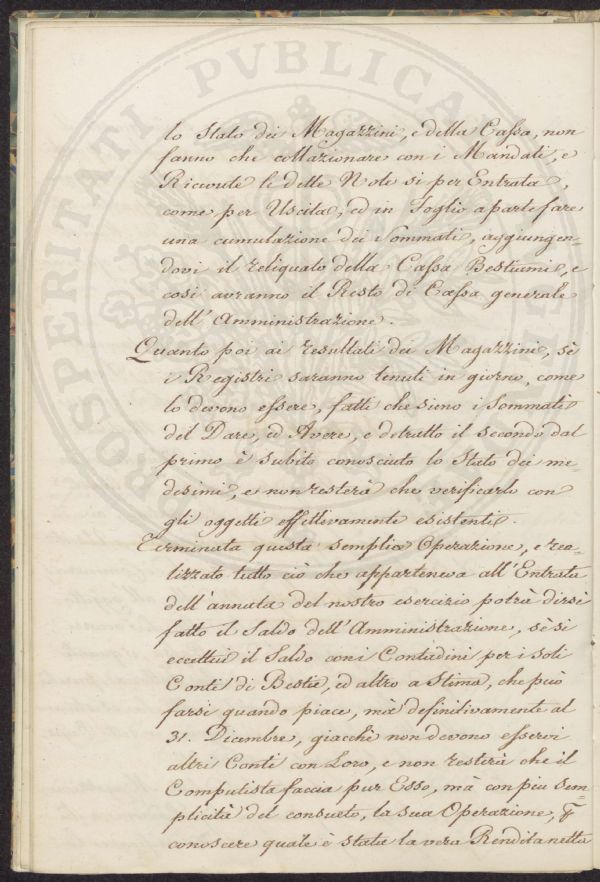 lo Stato dei Magazzini, e della Cassa, non
fanno che collazionare con i Mandati, e
Ricevute le dette Note si per Entrata,
come per Uscita, ed in Foglio a parte fare
una cumulazione dei Sommati, aggiungen-
dovi il reliquato della Cassa Bestiami, e
così avranno il Resto di Cassa generale
dell'Amministrazione.
Quanto poi ai resultati dei Magazzini, sè
i Registri saranno tenuti in giorno, come
lo devono essere, fatti che sieno i Sommati
del Dare, ed Avere, e detratto il secondo dal
primo è subito conosciuto lo Stato dei me-
desimi, e non resterà che verificarlo con
gli oggetti effettivamente esistenti.
Terminata questa semplice Operazione, e rea-
lizzato tutto ciò che apparteneva all'Entrata
dell'annata del nostro esercizio potrà dirsi
fatto il Saldo dell'Amministrazione, sè si
eccettui il Saldo con i Contadini per i soli
Conti di Bestie, ed altro a Stima, che può
farsi quando piace, mà definitivamente al
31. Dicembre, giacchè non devono esservi
altri Conti con Loro, e non resterà che il
Computista faccia pur Esso, mà con più sem-
plicità del consueto, la sua Operazione, p
conoscere quale è stata la vera Rendita netta
PROSPERITATI PVBLICAE